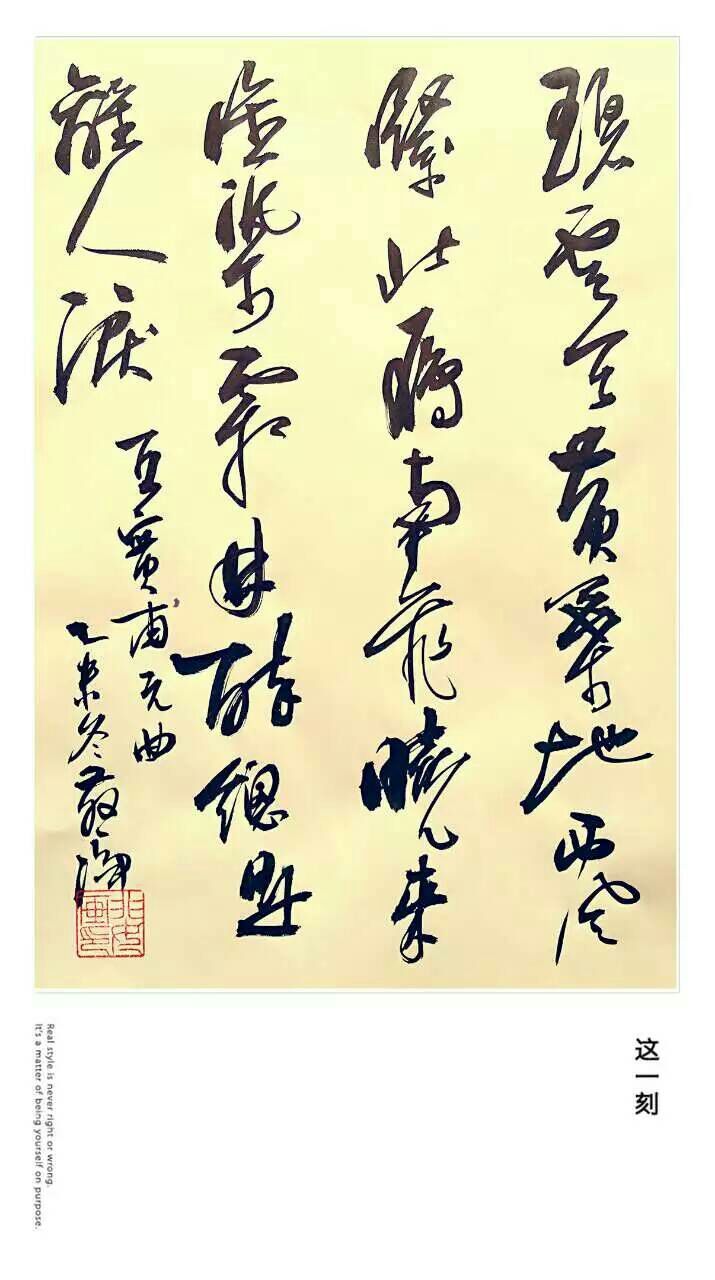 碧雲天黃葉地西风
緊北鴈南飛曉來
誰染霜林醉總是
離人淚
王實甫元曲
乙未冬
这一刻
Real style is never right or wrong.
It's a matter of being yourself on purpose.